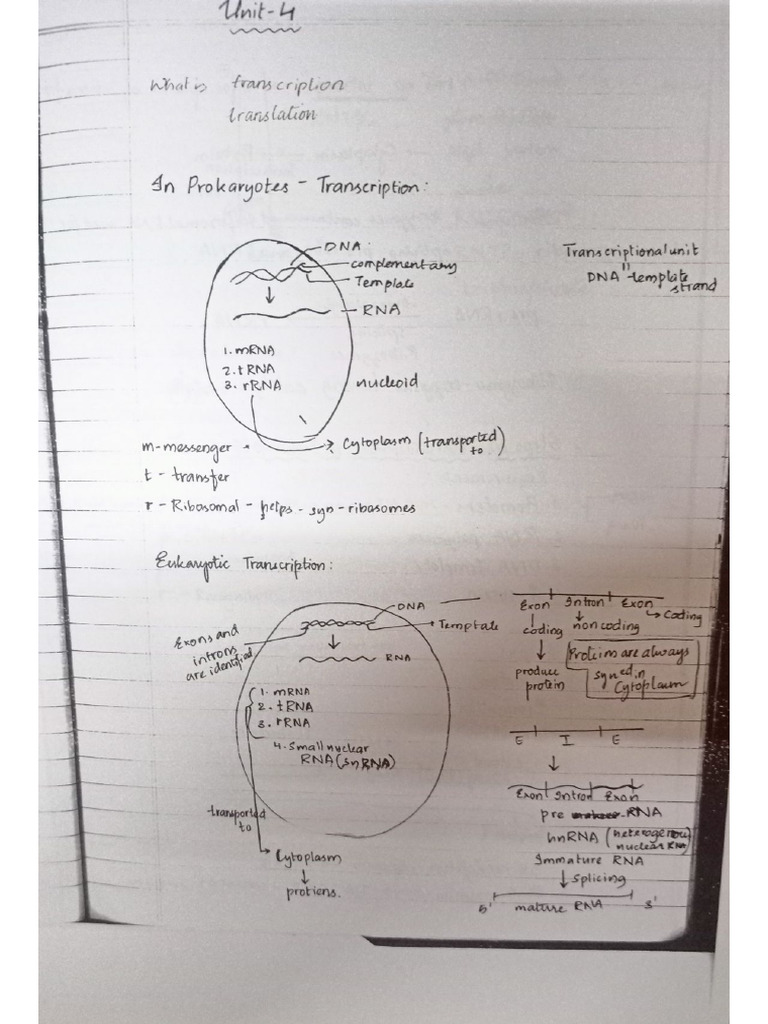 Unit-4
What is transcription
translation
In Prokaryotes - Transcription:
DNA
complementary
Template
RNA
1. mRNA
2. tRNA
3. rRNA
nucleoid
Transcriptional unit
"
DNA template
strand
m-messenger
Cytoplasm (transported
to)
t - transfer
r - Ribosomal - helps - syn - ribosomes
Eukaryotic Transcription:
DNA
Template
Exons and
introns
are identified
RNA
1. mRNA
2. tRNA
3. rRNA
4. Small nuclear
RNA (SnRNA)
transported
to
Cytoplasm
protiens.
Exon Intron Exon
coding non coding Coding
produce
protein
Proteins are always
syned in
Cytoplasm
E I E
Exon Intron Exon
pre RNA
hnRNA (heterogenous
nuclear RNA)
Immature RNA
Splicing
5' mature RNA 3'